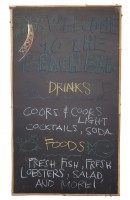 TO THE
DRINKS
COORS & COORS
LIGHT
COCKTAILS, SODA
FOODS
FRESH FISH, FRESH
LOBSTERS, SALAD,
AND MORE!